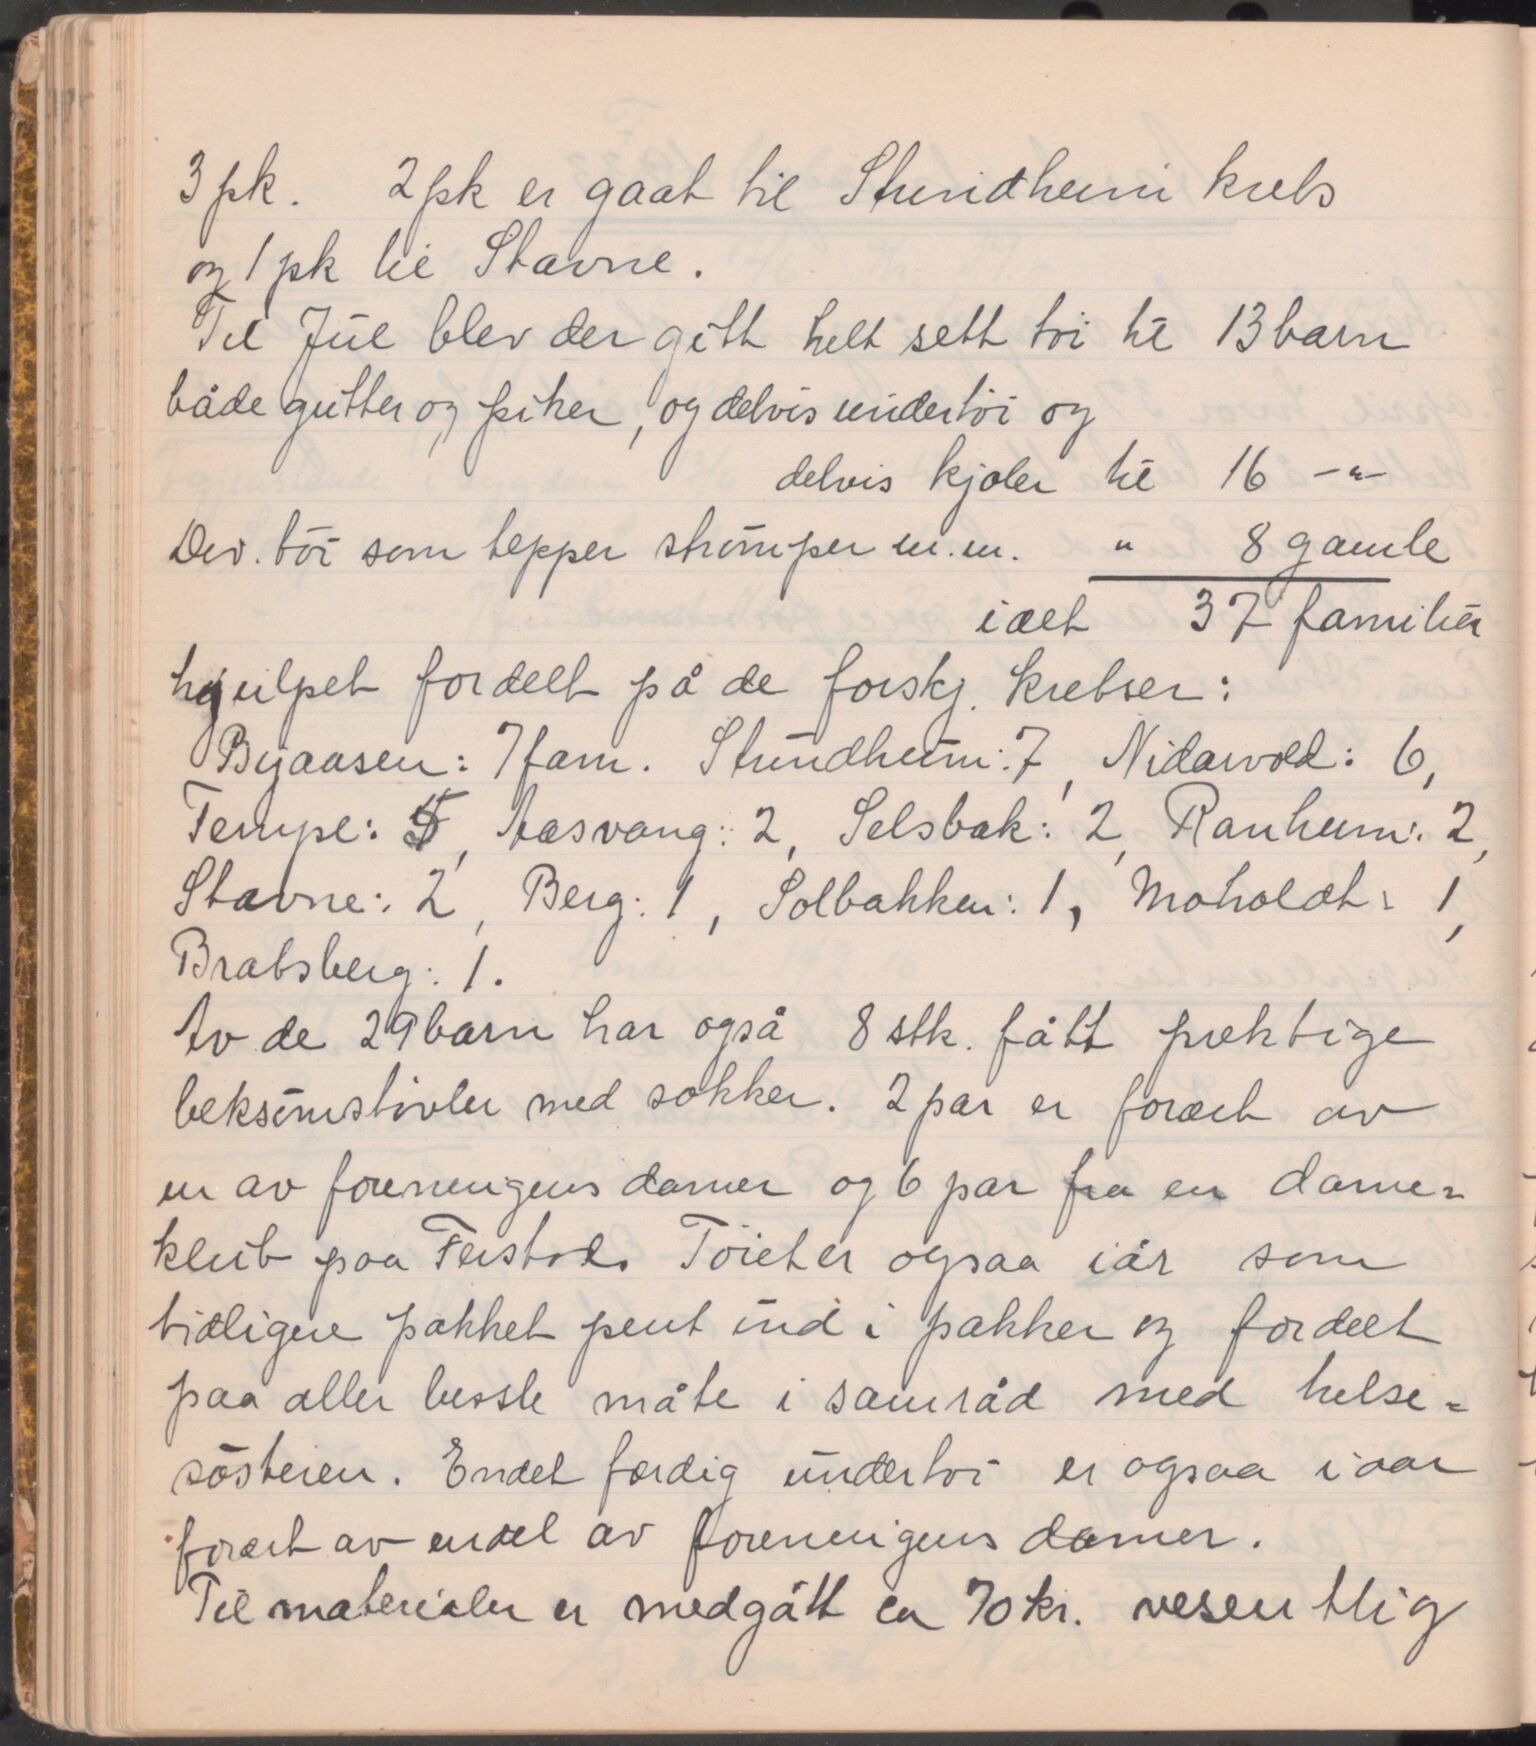 3 pk. 2 pk er gaat til Strindheim krets
og 1 pk til Stavne.
Til Jul blev der gitt helt sett töi til 13 barn
både gutter og piker, og delvis undertöi og
delvis kjoler til 16 -"-
Div. töi som tepper strömper m.m. " 8 gamle
ialt 37 familier
hjulpet fordelt på de forskj. kretser:
Byaasen: 7 fam. Strindheim: 7, Nidarvold: 6,
Tempe: 5, Aasvang: 2, Selsbak: 2, Ranheim: 2,
Stavne: 2, Berg: 1, Solbakken: 1, Moholdt: 1,
Bratsberg: 1.
Av de 29 barn har også 8 stk. fått prektige
beksömstövler med sokker. 2 par er foræret av
en av foreningens damer og 6 par fra en dame=
klub paa Ferstad. Töiet er ogsaa iår som
tidligere pakket pent ind i pakker og fordelt
paa aller beste måte i samråd med helse=
sösteren. Endel færdig undertöi er ogsaa iaar
foræret av endel av foreningens damer.
Til materialer er medgått ca 70 kr. vesentlig